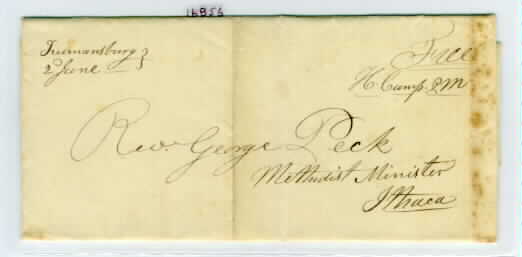 16856
Trumansburg }
2 June
Free
H. Camp P M
Rev. George Peck
Methodist Minister
Ithaca